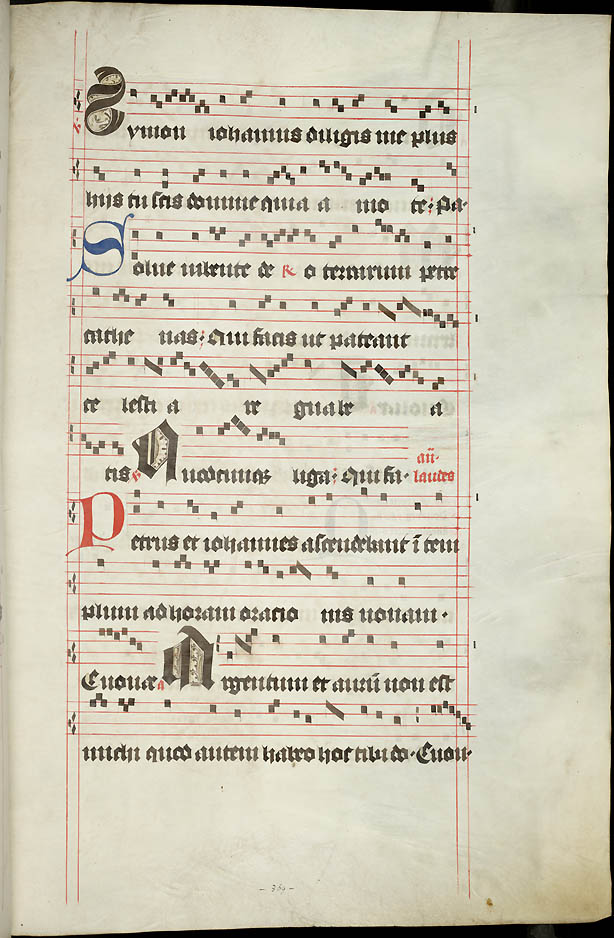 Symon iohannis diligis me plus
hijs tu scis domine quia a mo te: Pa-
Solue iubente de ℟ o terrarum petre
cathe nas: Qui facis ut pateant
ce lesti a re gna be a
tis ℣ Quodcumque liga: Qui fa- añ. laudes
Petrus et iohannes ascendebant ī tem
plum ad horam oracio nis nonam.
Euouae a Argentum et aurū non est
michi quod autem habeo hoc tibi do. Euou-
- 369 -